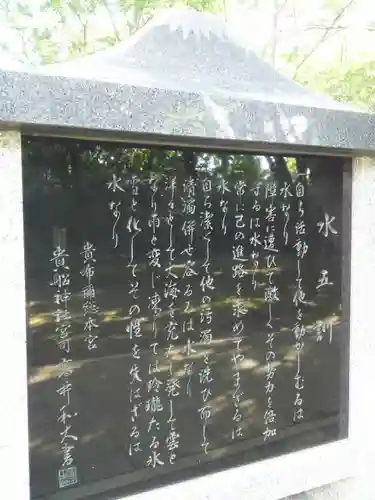 水五訓
一自ら活動して他を動かしむるは
水なり
一障害に遭ひて激しくその勢力を倍加
するは水なり
一常に己の進路を求めてやまざるは
水なり
一自ら潔くして他の汚濁を洗ひ而して
清濁併せ容るるは水なり
一洋々として大海を充たし発して雲と
なり雨と変じ凍りては玲瓏たる氷
雪と化してその性を失はざるは
水なり
貴布禰総本宮
貴船神社宮司高井和大書